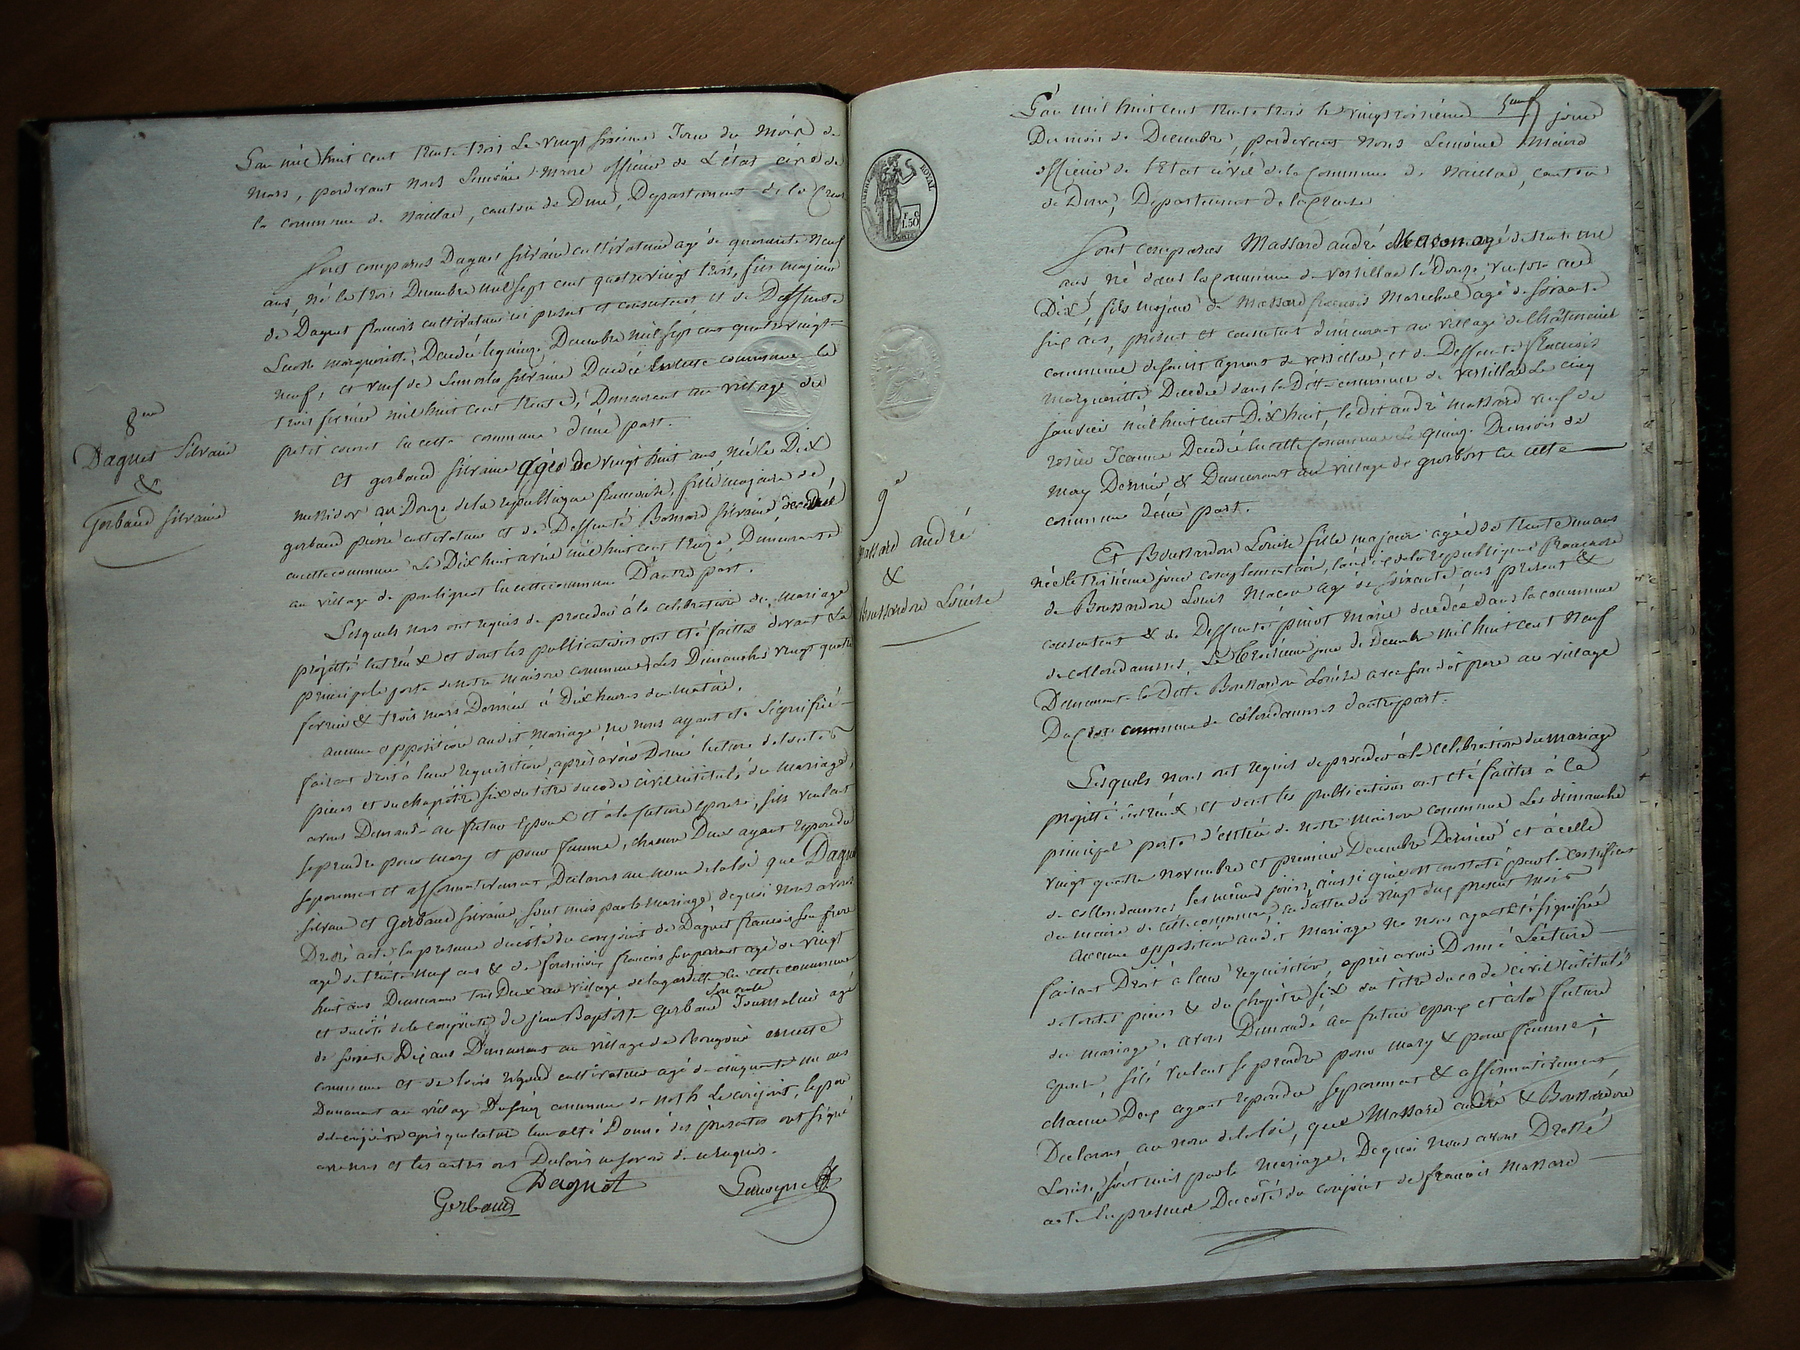 L'an mil huit cent trente trois Le vingt sixieme Jour du Mois de
Mars, pardevant nous Lemoine Maire officier de L'état civil de
la commune de Naillat, canton de Dun, Departement de la Creuse
Sont comparus Daguet silvain cultivateur agé de quarante neuf
ans, né le trois Decembre mil sept cent quatre vingt trois, fils majeur
de Daguet francois cultivateur ici present et consentant et de Deffunte
margueritte, Decedée le quinze Decembre mil sept cent quatre vingt
neuf, et veuf de silvaine Decedée en cette commune le
trois fevrier mil huit cent trente, Demeurant au village du
petit en cette commune d'une part.
8eme
Daguet Silvain
&
Gerbaud silvaine
Et gerbaud silvaine agée de vingt huit ans, née le Dix
messidor an Douze de la republique francaise, fille majeure de
gerbaud pierre cultivateur et de Deffunte Bonnard silvaine decedée
en cette commune Le Dix huit avril mil huit cent treize, Demeurante
au village de en cette commune D'autre part.
Lesquels nous ont requis de proceder à la celebration du Mariage
projetté entr'eux et dont les publications ont été faittes devant La
principale porte de notre maison commune, Les Dimanches vingt quatre
fevrier & trois mars Dernier à Dix heures du matin.
aucune opposition audit mariage ne nous ayant été Signifiée
faisant droit à leur requisition, après avoir Donné lecture de toutes
pieces et du chapitre six du titre du code civil intitulé du mariage,
avons Demandé au futur Epoux et à la future epouse s'ils veulent
se prendre pour mary et pour femme, chacun Deux ayant repondu
separement et affirmativement, Declarons au nom de la loi que Daguet
silvain et Gerbaud silvaine, sont unis par le mariage, dequoi nous avons
Dressé acte en presence du coté du conjoint de Daguet francois son frere
agé de trente neuf ans & de francois son parent agé de vingt
huit ans Demeurans tous Deux au village de lagardette en cette commune
son oncle
et du coté de la conjointe de jean Baptiste Gerbaud Journalier agé
de soixante Dix ans Demeurant au village de en cette
commune et de louis cultivateur agé de cinquante un ans
Demeurant au village commune de noth Le conjoint, le pere
de la conjointe après que lecture leur a été Donné des presentes ont signé
avec nous et les autres ont Declaré ne savoir de ce requis.
Daguet
Gerbaud
L'an mil huit cent trente trois le vingt troisième jour
Du mois de Decembre, pardevant Nous Lemoine Maire
officier de l'Etat civil de la Commune de Naillat, canton
de Dun, Departement de la Creuse
ROYAL
1.50
Sont comparus Massard andré Macon agé de trente
ans né dans la Commune de versillac le Douze
Dix, fils majeur de Massard francois Marechal agé de soixante
six ans, présent et consentant demeurant au village de
commune de saint agnant de versillac, et de Deffunte francois
margueritte Decedée dans la Ditte commune de versillac Le cinq
janvier mil huit cent Dix huit, le dit andré massard veuf de
Jeanne Decedée en cette commune Le quinze Du mois de
may Dernier & Demeurant au village de en cette
commune d'une part.
9e
Massard andré
&
Boussardon Louise
Et Boussardon Louise fille majeure agée de trente un ans
née le troisième jour complementaire, de la republique francaise
de Boussardon Louis Macon agé de soixante ans present &
consentant & de Deffunte pinot Marie decedée dans la commune
de collondannes Le troisieme jour de decembre mil huit cent Neuf
Demeurant la Ditte Boussardon Louise avec son dit pere au village
commune de collondannes d'autre part.
Lesquels nous ont requis de proceder à la celebration du mariage
projetté entr'eux et dont les publications ont été faittes à la
principal porte d'entrée de notre maison commune Les dimanche
vingt quatre Novembre et premier Decembre Dernier et à celle
de collondannes les même jours, aussi qu'il est constaté par le certificat
du maire de cette commune, en datte du vingt deux présent mois
Aucune opposition audit mariage ne nous ayant été signifiée
faisant Droit à leur requisition, après avoir Donné Lecture
de toutes pièces & du Chapitre six du titre du code civil intitulé
du mariage, avons Demandé au futur epoux et à la future
epouse s'ils veulent se prendre pour mary & pour femme;
chacun Deux ayant repondu separement & affirmativement
Declarons au nom de la loi, que Massard andré & Boussardon
Louise, sont unis par le mariage, Dequoi Nous avons Dressé
acte en presence Du côté du conjoint de francois Massard